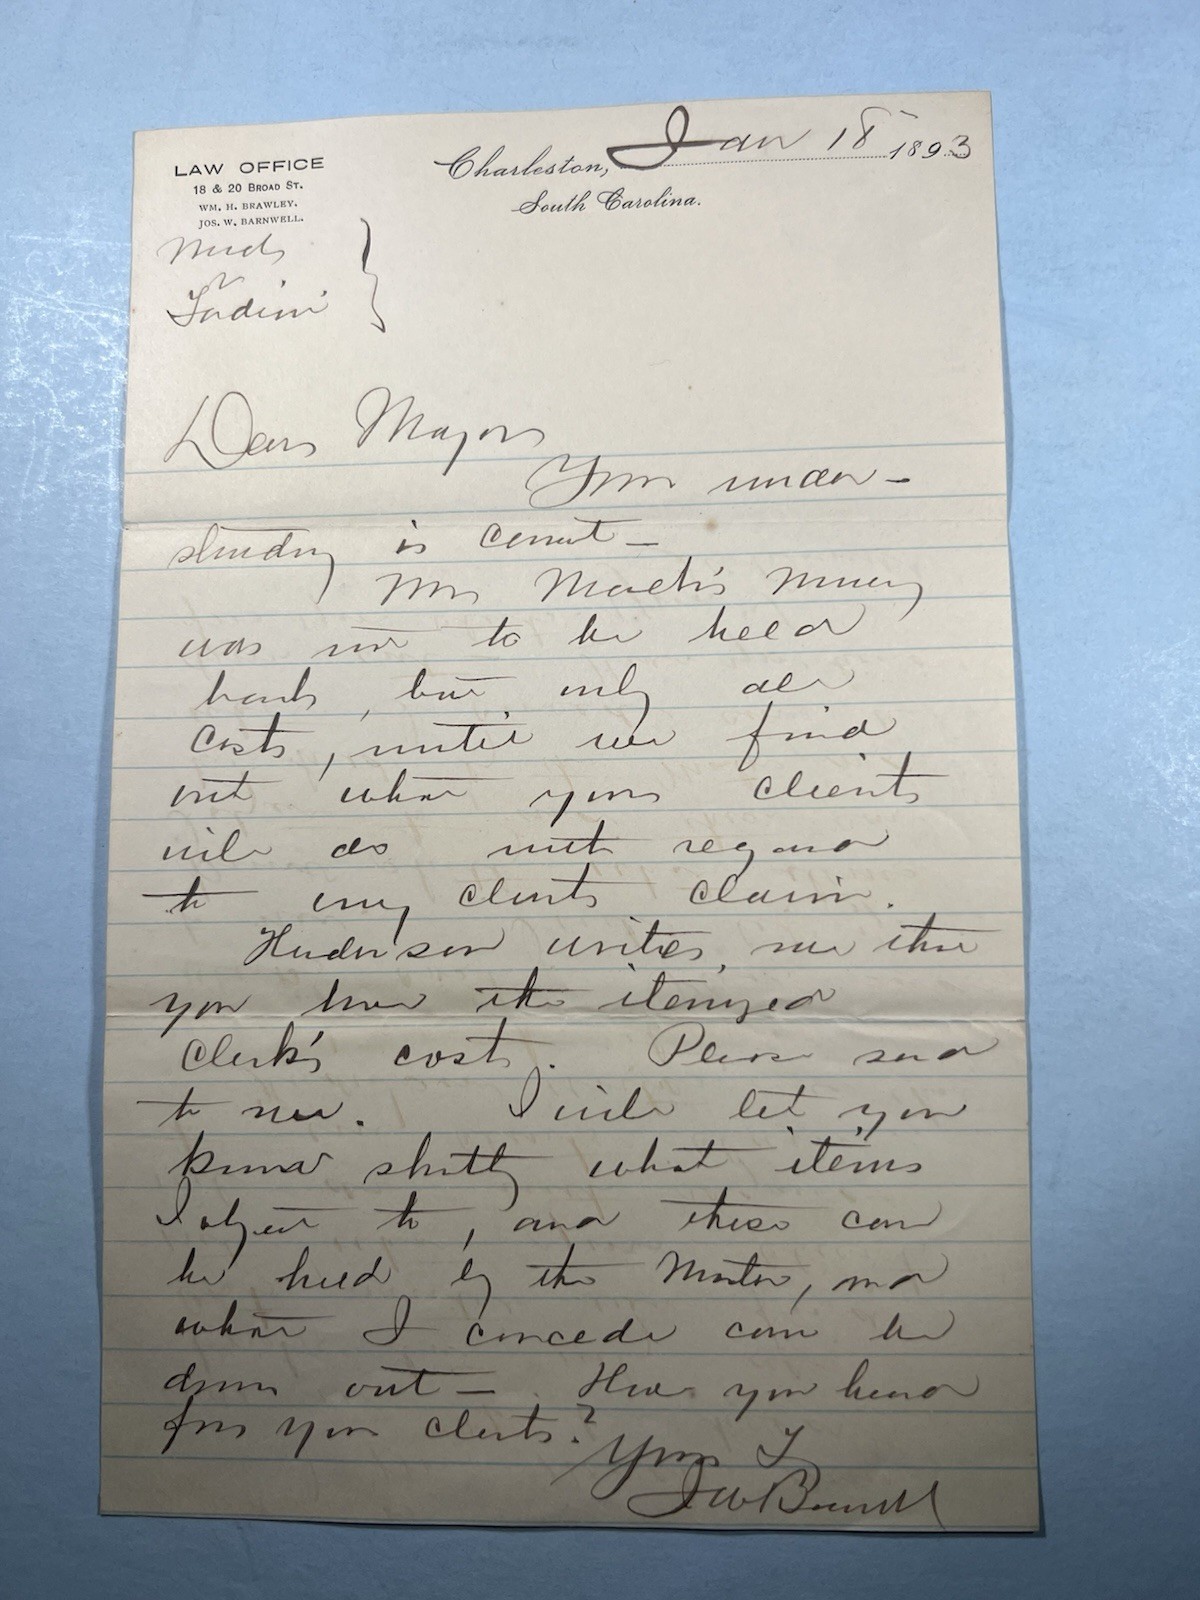 LAW OFFICE
18 & 20 BROAD ST.
WM. H. BRAWLEY.
JOS. W. BARNWELL.
Charleston, Jan 18 1893
South Carolina.
v
Dear Major
Your under-
standing is correct —
Mr Mack's money
was not to be held
back, but only all
costs, until we find
out what your clients
will do with regard
to my clients claim.
Henderson writes me that
you have the itemized
Clerk's costs. Please send
to me. I will let you
know shortly what items
I object to, and these can
be held by the Master, and
what I concede can be
drawn out —. Have you heard
from your clients?
Yours T
JW Barnwell